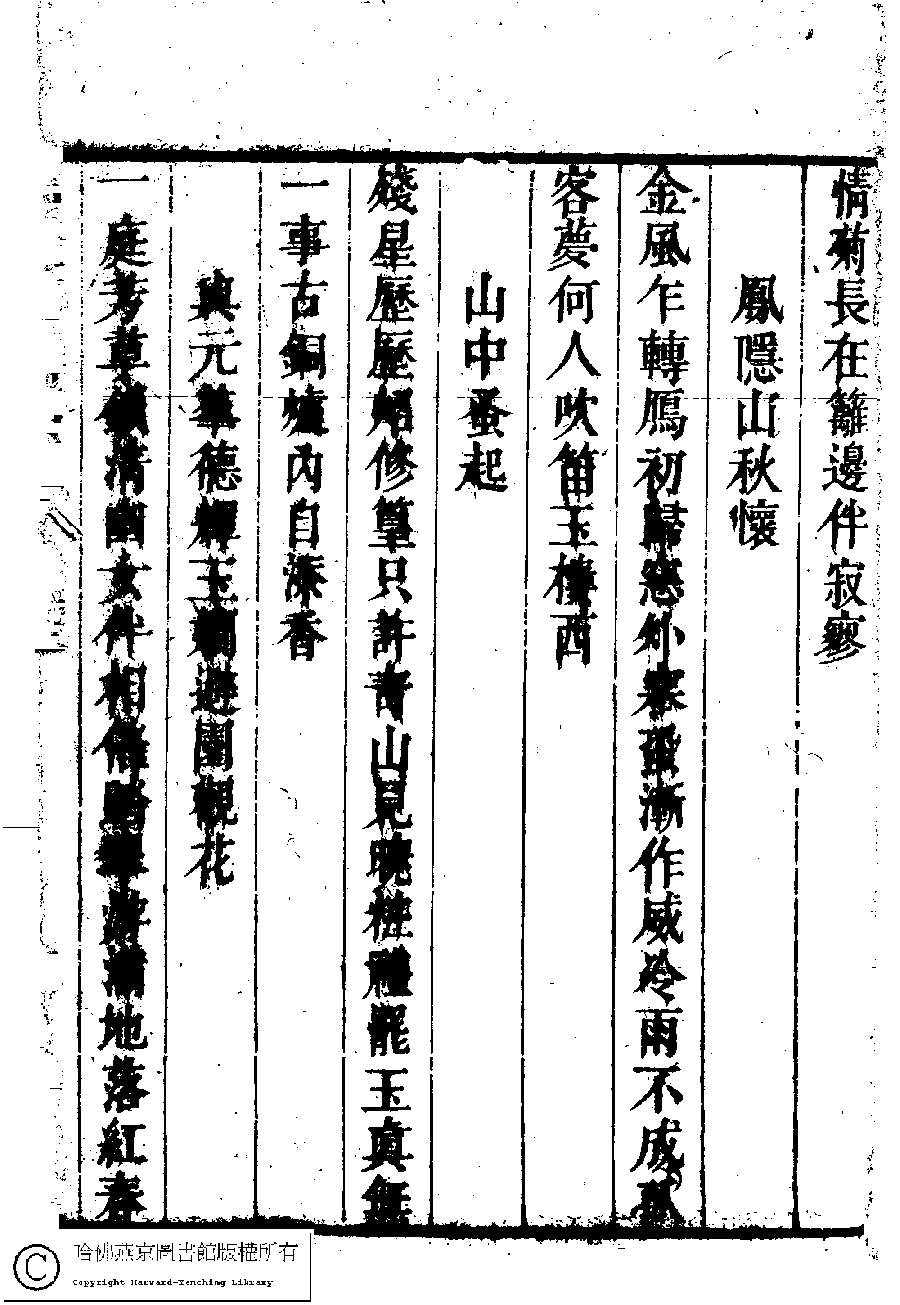 情菊長在籬邊伴寂寥
鳳隱山秋懷
金風乍轉鴈初歸窓外寒蛩漸作威冷雨不成孤
客夢何人吹笛玉樓西
山中蚤起
殘星歷歷炤修篁只許青山見曉粧禮罷玉真無
一事古銅爐內自添香
與元華德輝玉嫻遊園觀花
一庭芳草鎖清幽女伴相攜踏翠游滿地落紅春
哈佛燕京圖書館版權所有
Copyright Harvard-Yenching Library